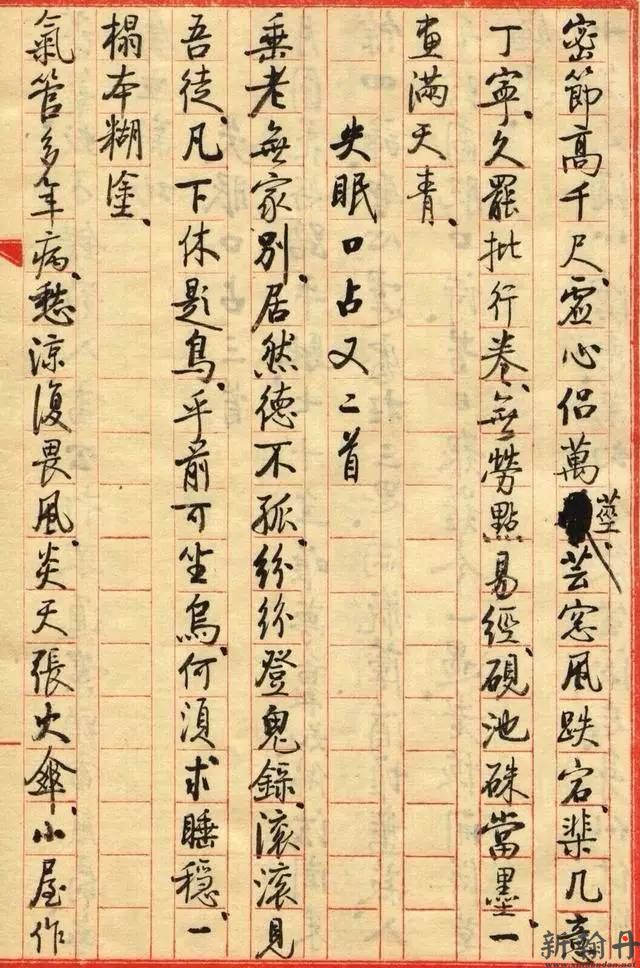 密節高千尺虛心侶萬莖芸窓風跌宕棐几意
丁寧久罷批行卷無勞點易經硯池硃當墨一
畫滿天青
失眠口占又二首
垂老無家別居然德不孤紛紛登鬼錄滾滾見
吾徒凡下休題鳥乎前可坐烏何須求睡穩一
榻本糊塗
氣管多年病愁涼復畏風炎天張火傘小屋作
新翰丹